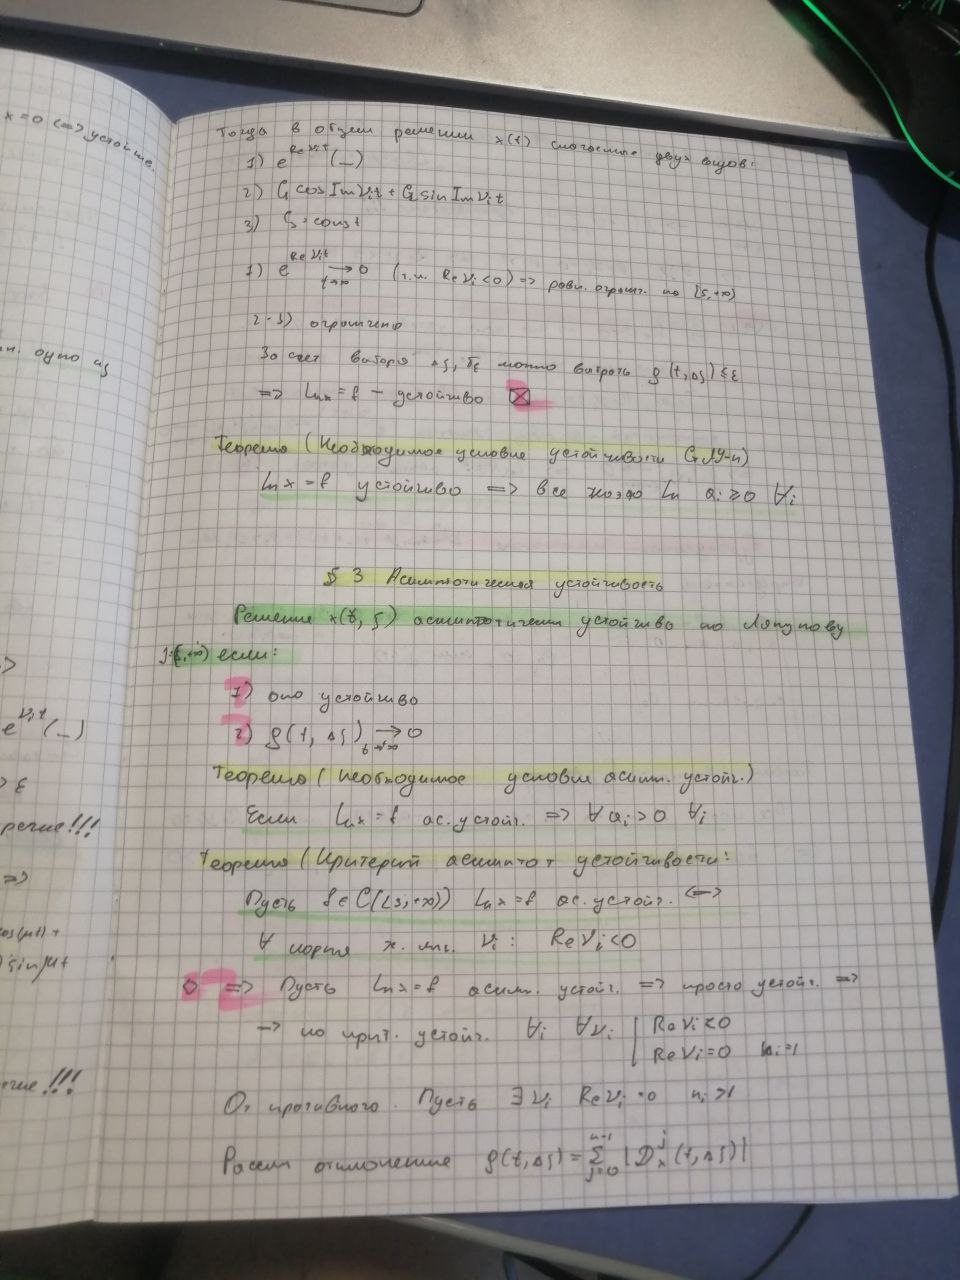 x=0 <=> устойчив.
Тогда в общем решении x(t) слагаемые двух видов:
1) e^{Re ν_i t}(...)
2) C₁ cos Im ν_i t + C₂ sin Im ν_i t
3) C₃ = const
1) e^{Re ν_i t} → 0 t→∞ (т.к. Re ν_i < 0) => равн. огранич. на [s, +∞)
2-3) ограничено
За счет выбора Δξ, δ_ε можно выбрать ρ(t, Δξ) ≤ ε
=> L_n x = f – устойчиво ⊠
Теорема (Необходимое условие устойчивости
L_n x = f устойчиво => все коэфф L_n a_i ≥ 0 ∀i
§ 3 Асимптотическая устойчивость
Решение x(t, ξ) асимптотически устойчиво по Ляпунову
если:
1) оно устойчиво
2) ρ(t, Δξ) → 0 t→+∞
Теорема (Необходимое условие асимп. устойч.)
Если L_n x = f ас. устойч. => ∀ a_i > 0 ∀i
Теорема (Критерий асимптот устойчивости:
Пусть f ∈ C([s, +∞)) L_n x = f ас. устойч. <=>
∀ корня х. мн. ν_i : Re ν_i < 0
=> Пусть L_n x = f асим. устойч. => просто устойч. =>
=> по крит. устойч. ∀i ∀ν_i [ Re ν_i < 0
Re ν_i = 0 k_i = 1
От противного. Пусть ∃ ν_i Re ν_i = 0 n_i > 1
Рассм отклонение ρ(t, Δξ) = Σ_{j=0}^{n-1} |D_x^j (t, Δξ)|
e^{ν_i t}(...)
речие!!!
=>
cos(μt) +
sin μt
чие!!!